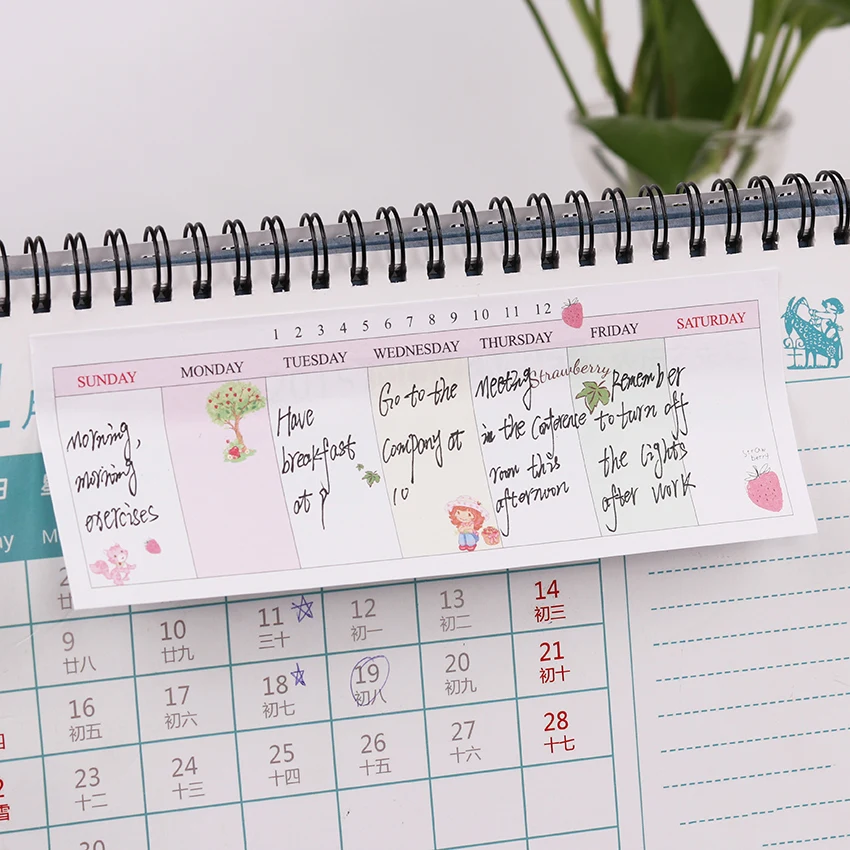 1 2 3 4 5 6 7 8 9 10 11 12
SUNDAY MONDAY TUESDAY WEDNESDAY THURSDAY FRIDAY SATURDAY
Morning,
morning
exercises
Have
breakfast
at 9
Go to the
company at
10
Meeting
in the Conference
room this
afternoon
Strawberry
Remember
to turn off
the lights
after work
14
初三
9 10 11 12 13
廿八 廿九 三十 初一 初二
21
初十
16 17 18 19 20
初五 初六 初七 初八 初九
28
十七
23 24 25 26 27
十二 十三 十四 十五 十六
30